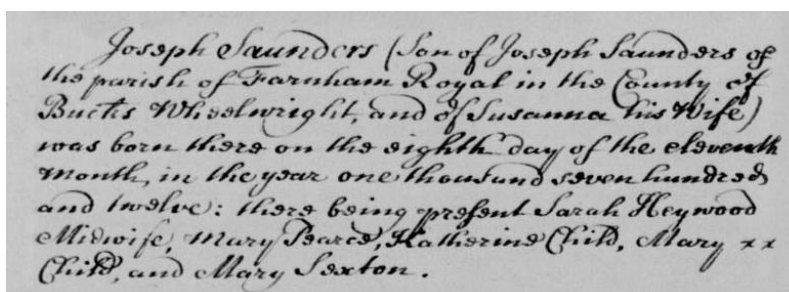 Joseph Saunders (Son of Joseph Saunders of
the parish of Farnham Royal in the County of
Bucks Wheelwright, and of Susanna his Wife)
was born there on the eighth day of the eleventh
month, in the year one thousand seven hundred
and twelve: there being present Sarah Heywood
Midwife, Mary Pearce, Katherine Child, Mary xx
Child, and Mary Sexton.